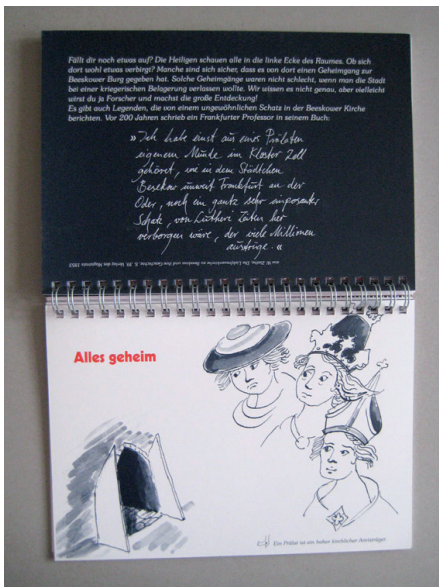 Fällt dir noch etwas auf? Die Heiligen schauen alle in die linke Ecke des Raumes. Ob sich
dort wohl etwas verbirgt? Manche sind sich sicher, dass es von dort einen Geheimgang zur
Beeskower Burg gegeben hat. Solche Geheimgänge waren nicht schlecht, wenn man die Stadt
bei einer kriegerischen Belagerung verlassen wollte. Wir wissen es nicht genau, aber vielleicht
wirst du ja Forscher und machst die große Entdeckung!
Es gibt auch Legenden, die von einem ungewöhnlichen Schatz in der Beeskower Kirche
berichten. Vor 200 Jahren schrieb ein Frankfurter Professor in seinem Buch:
»Ich habe einst aus eines Prälaten
eigenem Munde im Kloster Zell
gehöret, wie in dem Städtchen
Beeskow unweit Frankfurt an der
Oder, noch ein gantz sehr imposanter
Schatz, von Lutheri Zäten her
verborgen wäre, der viele Millionen
austrüge.«
Alles geheim
Ein Prälat ist ein hoher kirchlicher Amtsträger